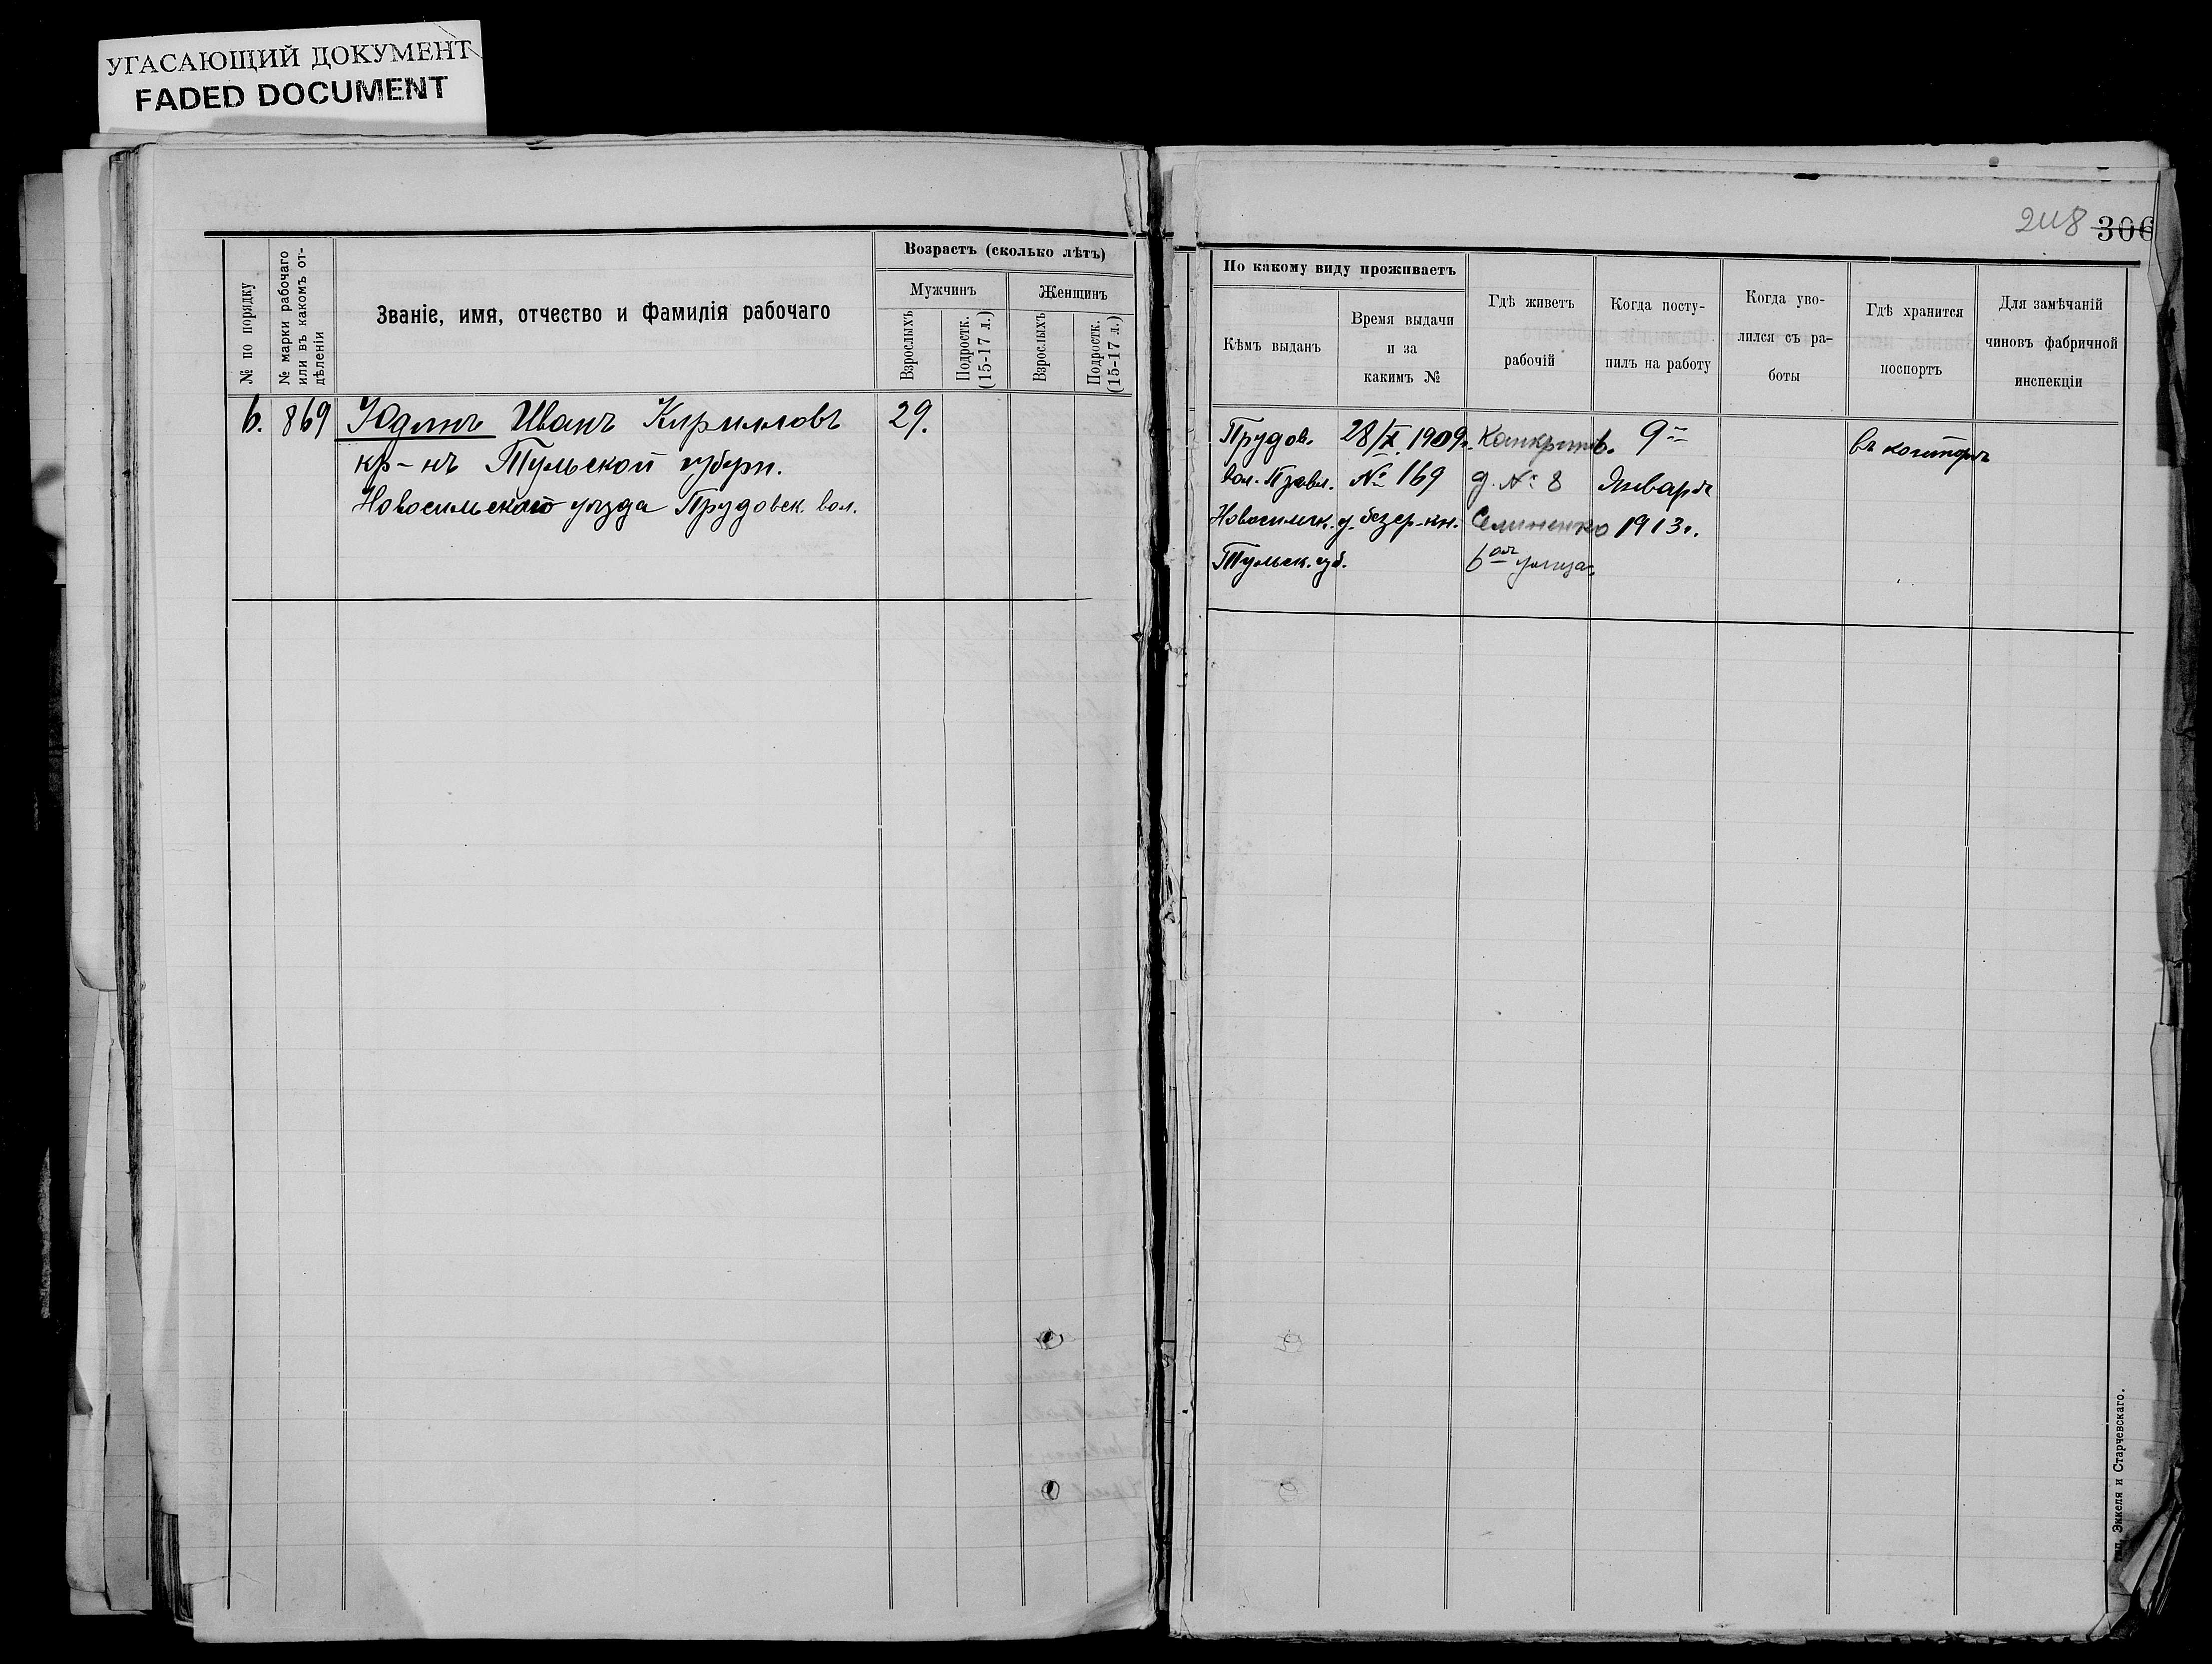 УГАСАЮЩИЙ ДОКУМЕНТ
FADED DOCUMENT
№ по порядку
№ марки рабочаго
или въ какомъ от-
дѣленіи
Званіе, имя, отчество и фамилія рабочаго
Возрастъ (сколько лѣтъ)
Мужчинъ
Женщинъ
Взрослыхъ
Подростк.
(15-17 л.)
Взрослыхъ
Подростк.
(15-17 л.)
6. 869 Юдинъ Иванъ Кирилловъ 29.
кр-нъ Тульской губерн.
Новосильскаго уѣзда Прудовск. вол.
248 306
По какому виду проживаетъ
Кѣмъ выданъ
Время выдачи
и за
какимъ №
Гдѣ живетъ
рабочій
Когда посту-
пилъ на работу
Когда уво-
лился съ ра-
боты
Гдѣ хранится
поспортъ
Для замѣчаній
чиновъ фабричной
инспекціи
Прудов.
вол. Правл.
Новосильск. у.
Тульск. губ.
28/X 1909г.
№ 169
безср-кн.
д. № 8
6ая улица
9го
Января
1913г.
въ конторѣ
тип. Эккеля и Старчевскаго.